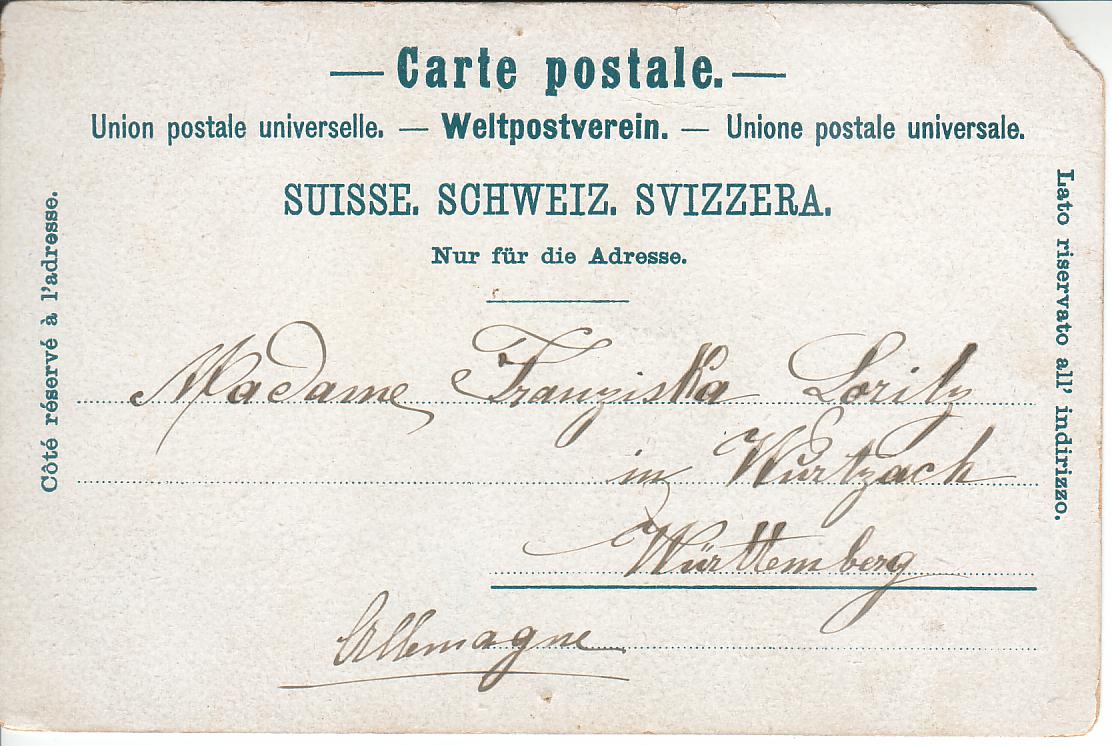 — Carte postale. —
Union postale universelle. — Weltpostverein. — Unione postale universale.
SUISSE. SCHWEIZ. SVIZZERA.
Nur für die Adresse.
Côté réservé à l'adresse.
Lato riservato all' indirizzo.
Madame Franziska Loritz
in Wurtzach
Württemberg
Allemagne